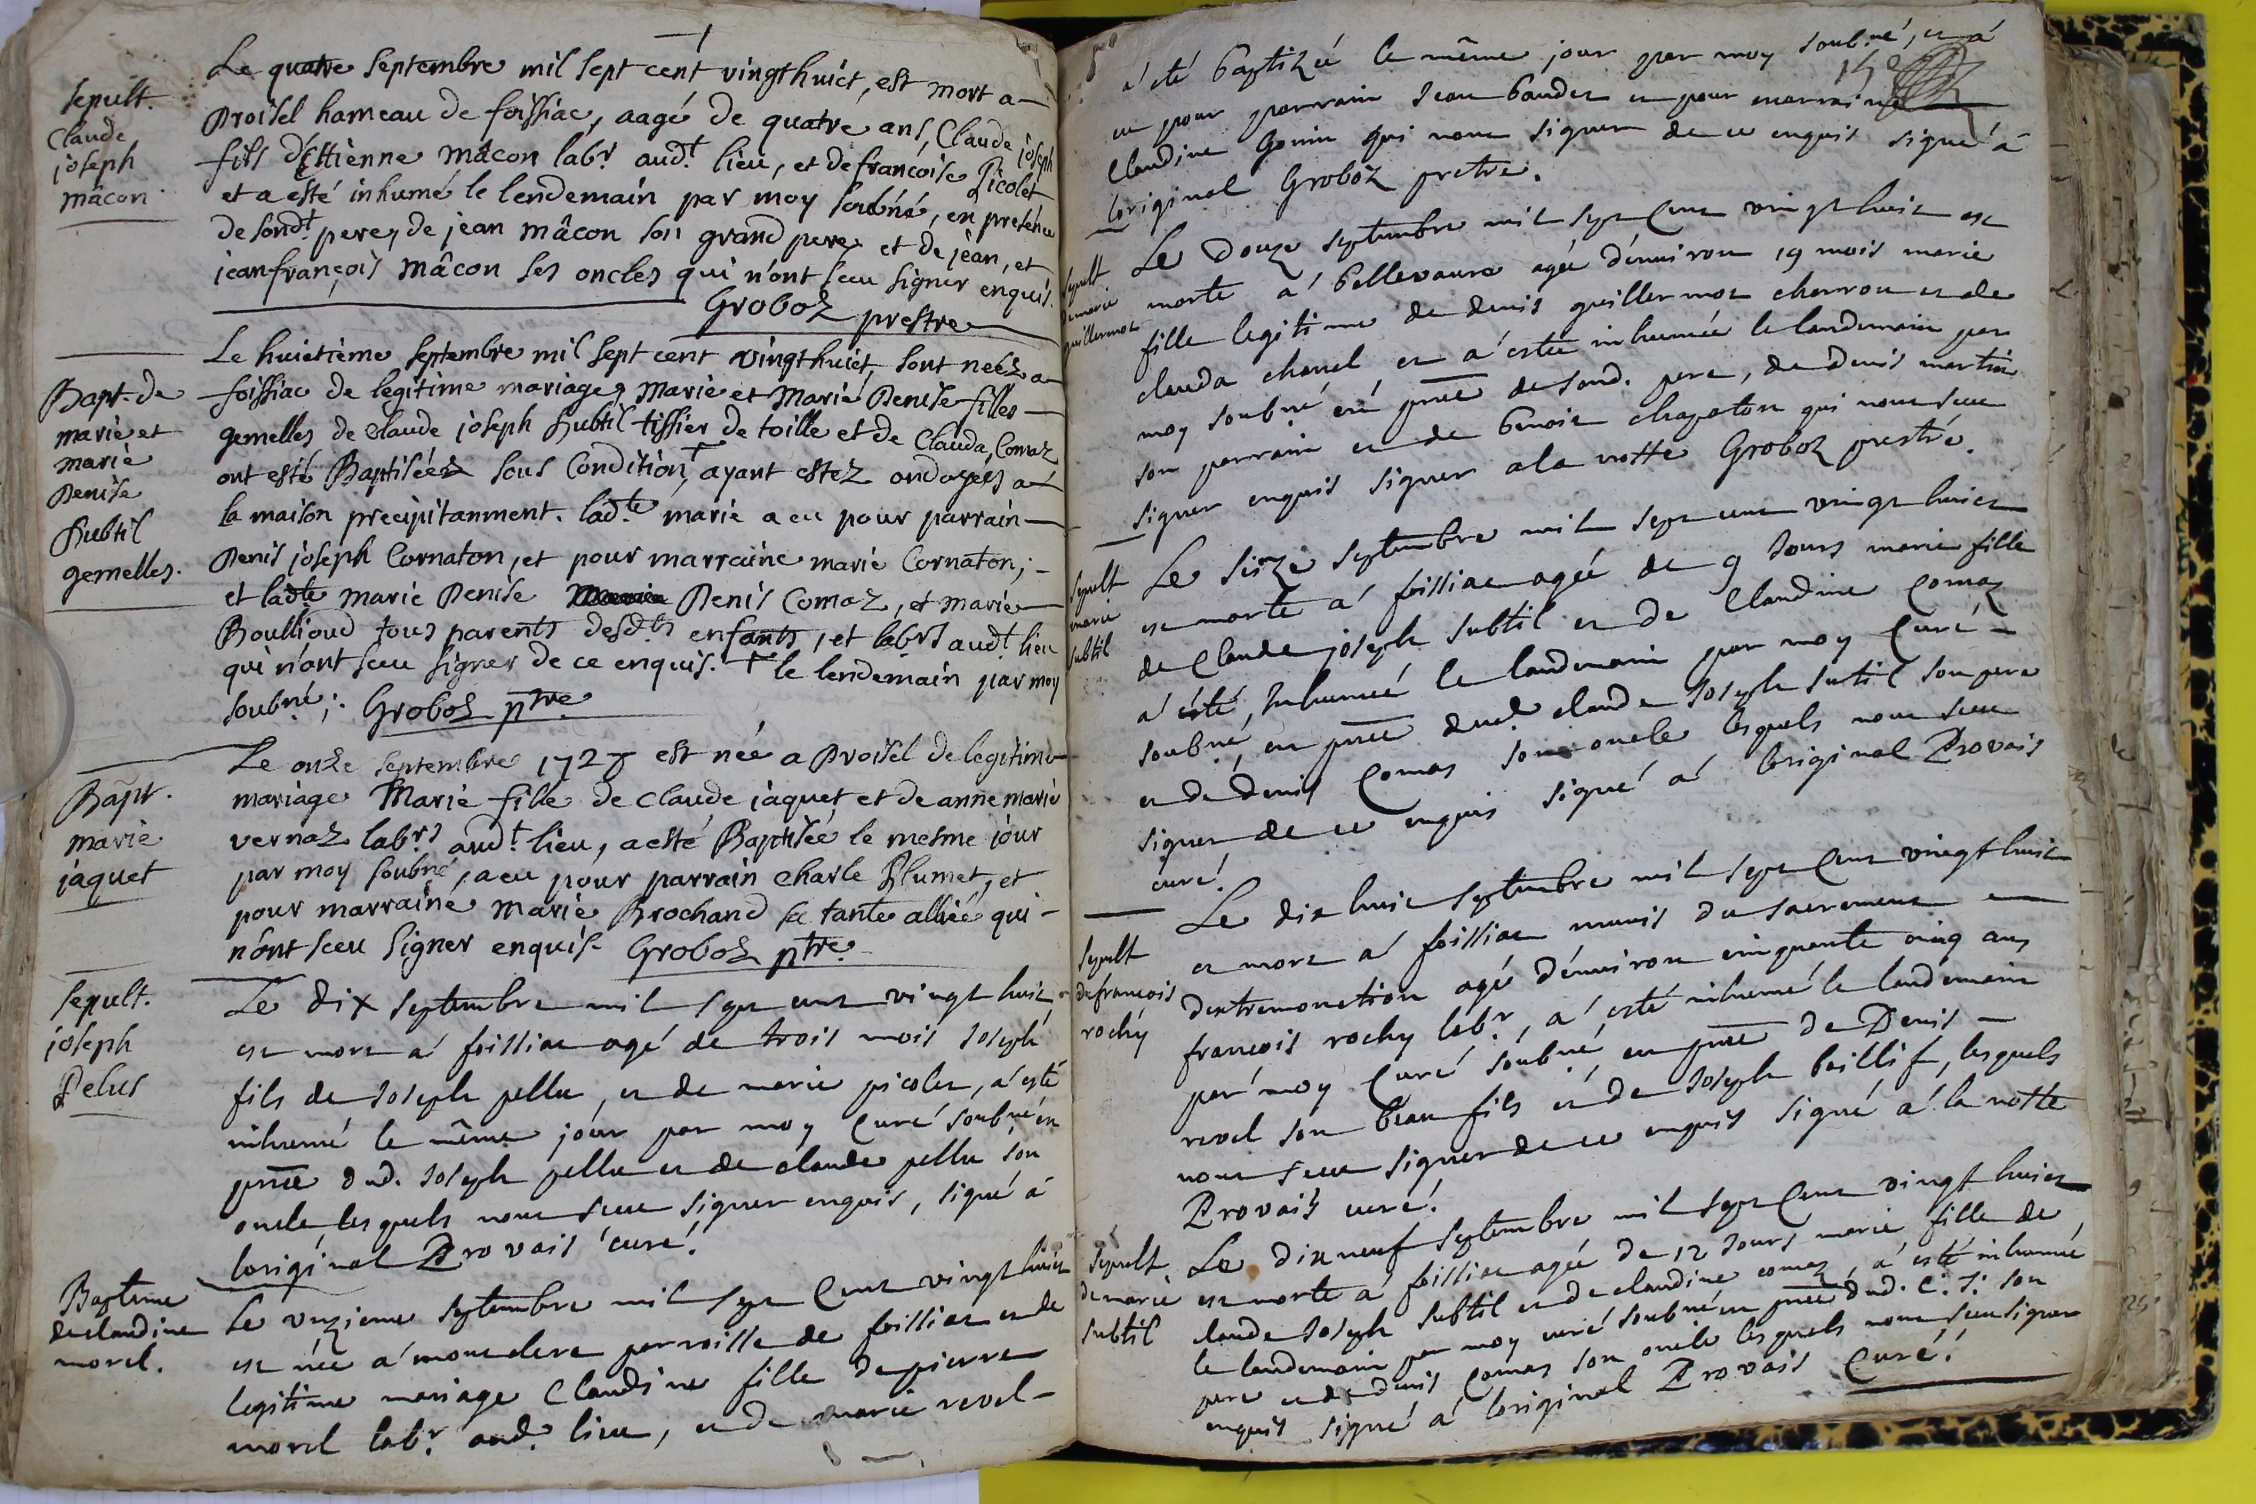 sepult.
Claude
joseph
mâcon
Le quatre septembre mil sept cent vingthuict, est mort a
Droisel hameau de foissiac, aagé de quatre ans, Claude joseph
fils d'Ettienne mâcon labr. audt. lieu, et de francoise Picolet
et a esté inhumé le lendemain par moy soubné, en presence
de sondt. pere, de jean mâcon son grand pere et de jean, et
jean françois mâcon ses oncles qui n'ont sceu signer enquis.
Groboz prestre
Bapt. de
marie et
marie
Denise
Subtil
gemelles.
Le huictième septembre mil sept cent vingthuict sont neéz a
foissiac de legitime mariage, Marie et Marie Denise filles
gemelles de Claude joseph Subtil tissier de toille et de Clauda Comaz
ont esté Baptisées sous Condition, ayant estez ondoyéés a
la maison precipitamment. ladte. marie a eu pour parrain
Denis joseph Cornaton, et pour marraine marie Cornaton;
et ladte marie Denise Denis Comaz, et marie
Boullioud tous parents desdts enfants, et labrs audt. lieu
qui n'ont sceu signer de ce enquis. + le lendemain par moy
soubné;. Groboz ptre
Bapt.
marie
jaquet
Le onze septembre 1728 est née a Droisel de legitime
mariage Marie fille de Claude jaquet et de anne marie
vernaz labrs audt. lieu, a esté Baptisée le mesme jour
par moy soubné, a eu pour parrain Charle Plumet, et
pour marraine marie Brochand sa tante alliéé qui
n'ont sceu signer enquis Groboz ptre.
sepult.
joseph
Pelus
Le dix septembre mil sept cent vingt huit
est mort a foissiac agé de trois mois Joseph
fils de Joseph pellu, et de marie picolet, a esté
inhumé le même jour par moy Curé soubné en
pnce dud. Joseph pellu et de claude pellu son
oncle, lesquels nont sceu signer enquis, signé a
loriginal Provais curé.
Bapteme
de claudine
morel.
Le onzieme septembre mil sept Cent vingt huict
est née a moncelere parroisse de foissiac et de
legitime mariage Claudine fille de pierre
morel labr. aud. lieu, et de marie revel
a été baptizée le même jour par moy soubné, et a
eu pour parrain Jean baudet et pour marraine
Claudine Gonin qui nont signer de ce enquis signé a
loriginal Groboz pretre.
sepult
de marie
guillermot
Le Douze septembre mil sept Cent vingt huit est
morte a bellevaure agée d'environ 19 mois marie
fille legitime de denis guillermot charron et de
clauda charvel et a estée inhumée le landemain par
moy soubné en pnce de sond. pere, de Denis martin
son parrain et de benoit chapaton qui nont sceu
signer enquis signer a la notte Groboz prestre.
sepult
marie
subtil
Le sèize septembre mil sept cent vingt huict
est morte a foissiac agée de 9 Jours marie fille
de Claude joseph subtil et de Claudine Comaz
a esté, Inhumée le landemain par moy Curé
soubné, en pnce dud. claude Joseph subtil son pere
et de denis Comas son oncle lesquels nont sceu
signer de ce enquis signé a loriginal Provais
curé.
sepult
de francois
rochy
Le dix huit septembre mil sept Cent vingt huit
est mort a foissiac munis du sacrement
dextremonction agé d'environ cinquante cinq ans
francois rochy labr., a esté inhumé le landemain
par moy Curé soubné, en pnce de Denis
revel son beau fils et de Joseph baillif, lesquels
nont sceu signer de ce enquis signé a la notte
Provais curé.
sepult
de marie
subtil
Le dix neuf septembre mil sept Cent vingt huict
est morte a foissiac agée de 12 Jours marie fille de
claude Joseph subtil et de claudine comaz, a esté inhumée
le landemain par moy curé soubné en pnce dud. C. J. son
pere et de denis Comas son oncle lesquels nont sceu signer
enquis signé a loriginal Provais Curé.